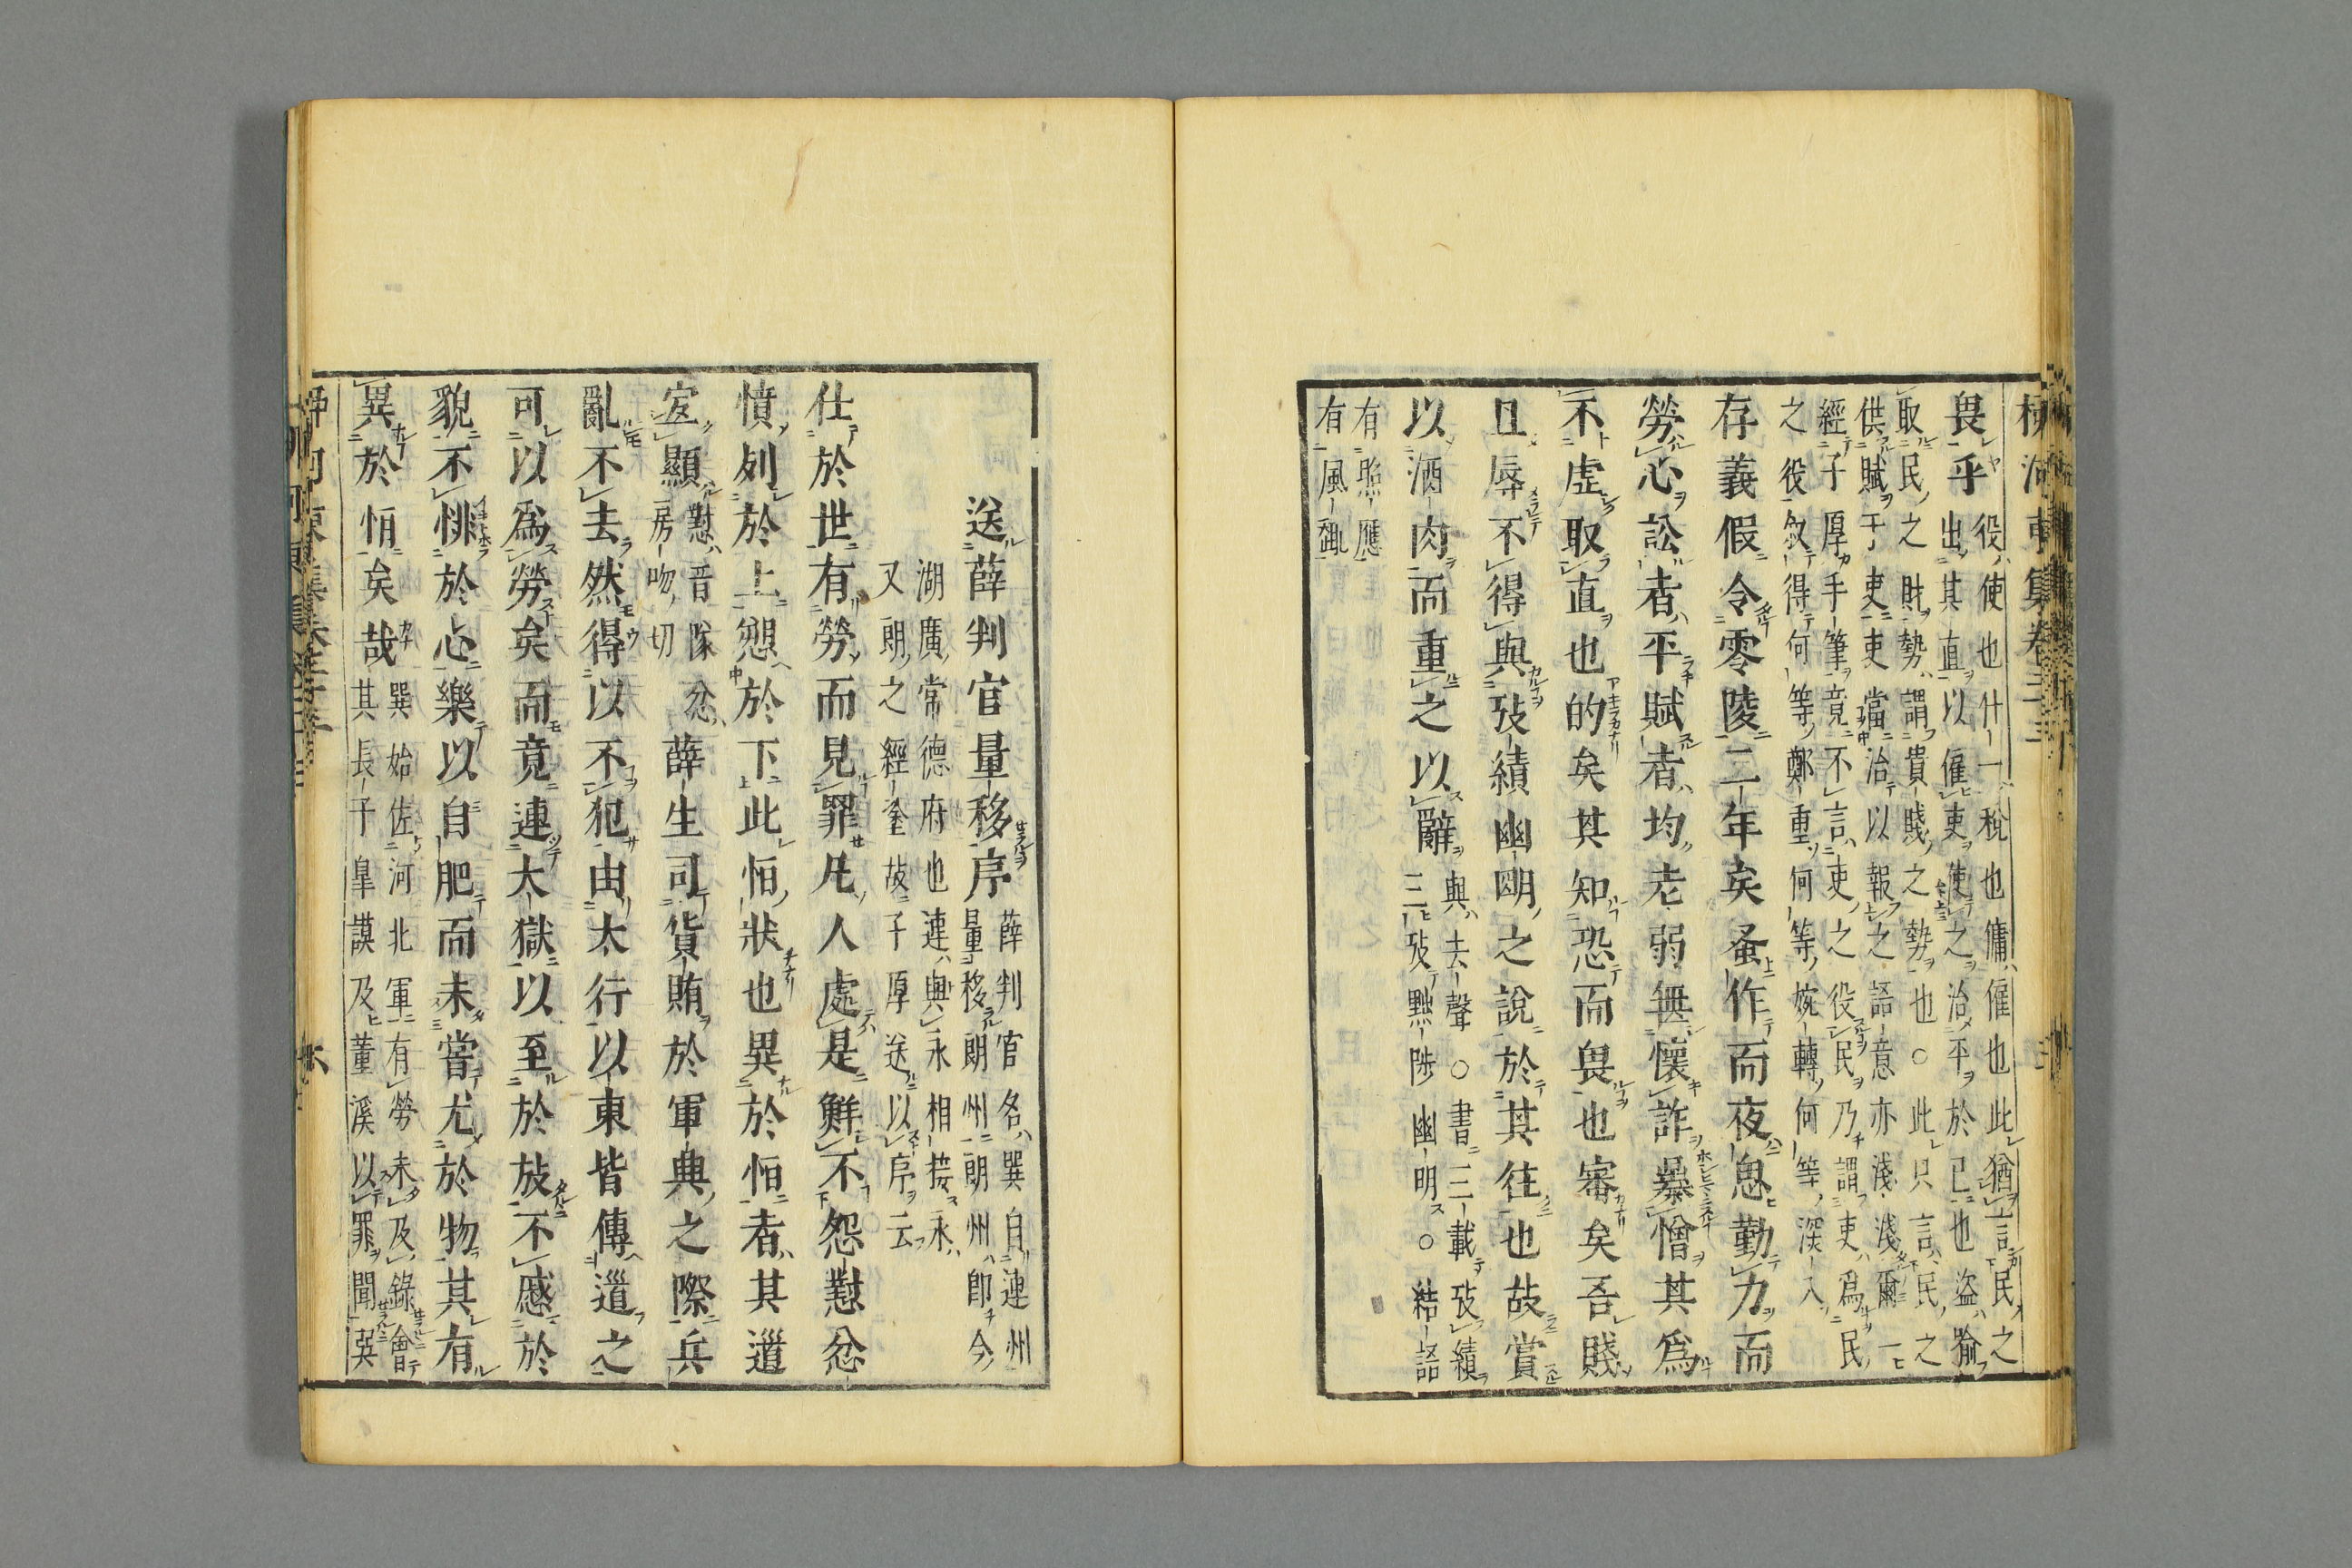 柳河東集卷二十三
畏乎役使也什一稅也傭僱也此猶言民之
出其直以僱吏使之治平於已也盜踰
取民之財勢謂貴賤之勢也○此只言民之
供賦于吏吏當治以報之語意亦淺淺爾一
經子厚手筆竟不言吏之役民乃謂吏爲民
之役叙得何等鄭重何等婉轉何等深入
存義假令零陵二年矣蚤作而夜息勤力而
勞心訟者平賦者均老弱無懷詐暴憎其爲
不虛取直也的矣其知恐而畏也審矣吾賤
且辱不得與攷績幽明之說於其往也故賞
以酒肉而重之以辭與去聲○書三載攷績
三攷黜陟幽明○結語
有照應
有風
送薛判官量移序薛判官名巽自連州
量移朗州朗州即今
湖廣常德府也連與永相接永
又朗之經途故子厚送以序云
仕於世有勞而見罪凡人處是鮮不怨懟忿
憤列於上愬於下此恒狀也異於恒者其道
宜顯懟音隊忿
房吻切薛生司貨賄於軍興之際兵
亂不去然得以不犯由太行以東皆傳道之
可以爲勞矣而竟連大獄以至於放不慼於
貌不悱於心樂以自肥而未嘗尤於物其有
異於恒矣哉巽始佐河北軍有勞未及錄會
其長于皐謨及董溪以罪聞巽